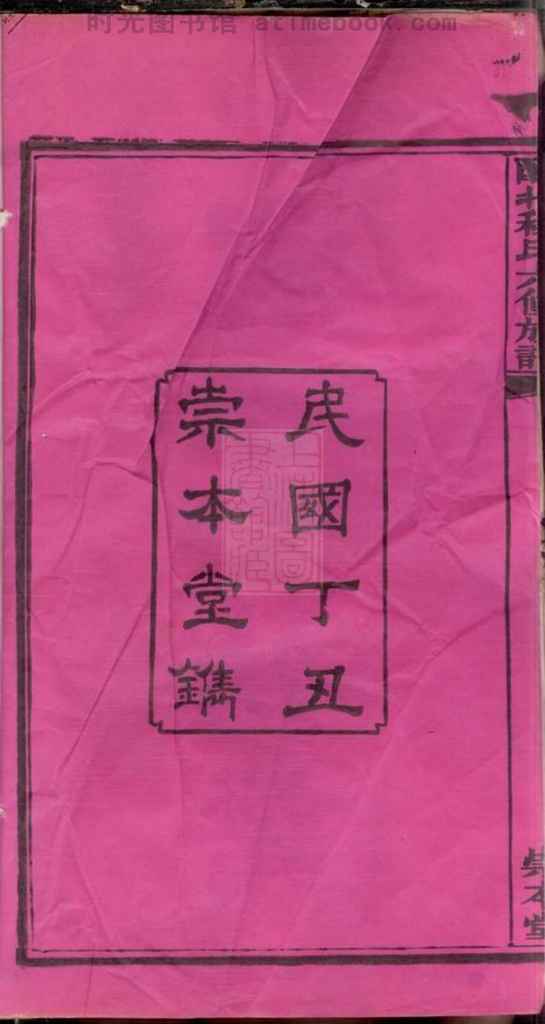 时光图书馆 atimebook.com
民國丁丑
崇本堂鐫
氏六修族譜
崇本堂